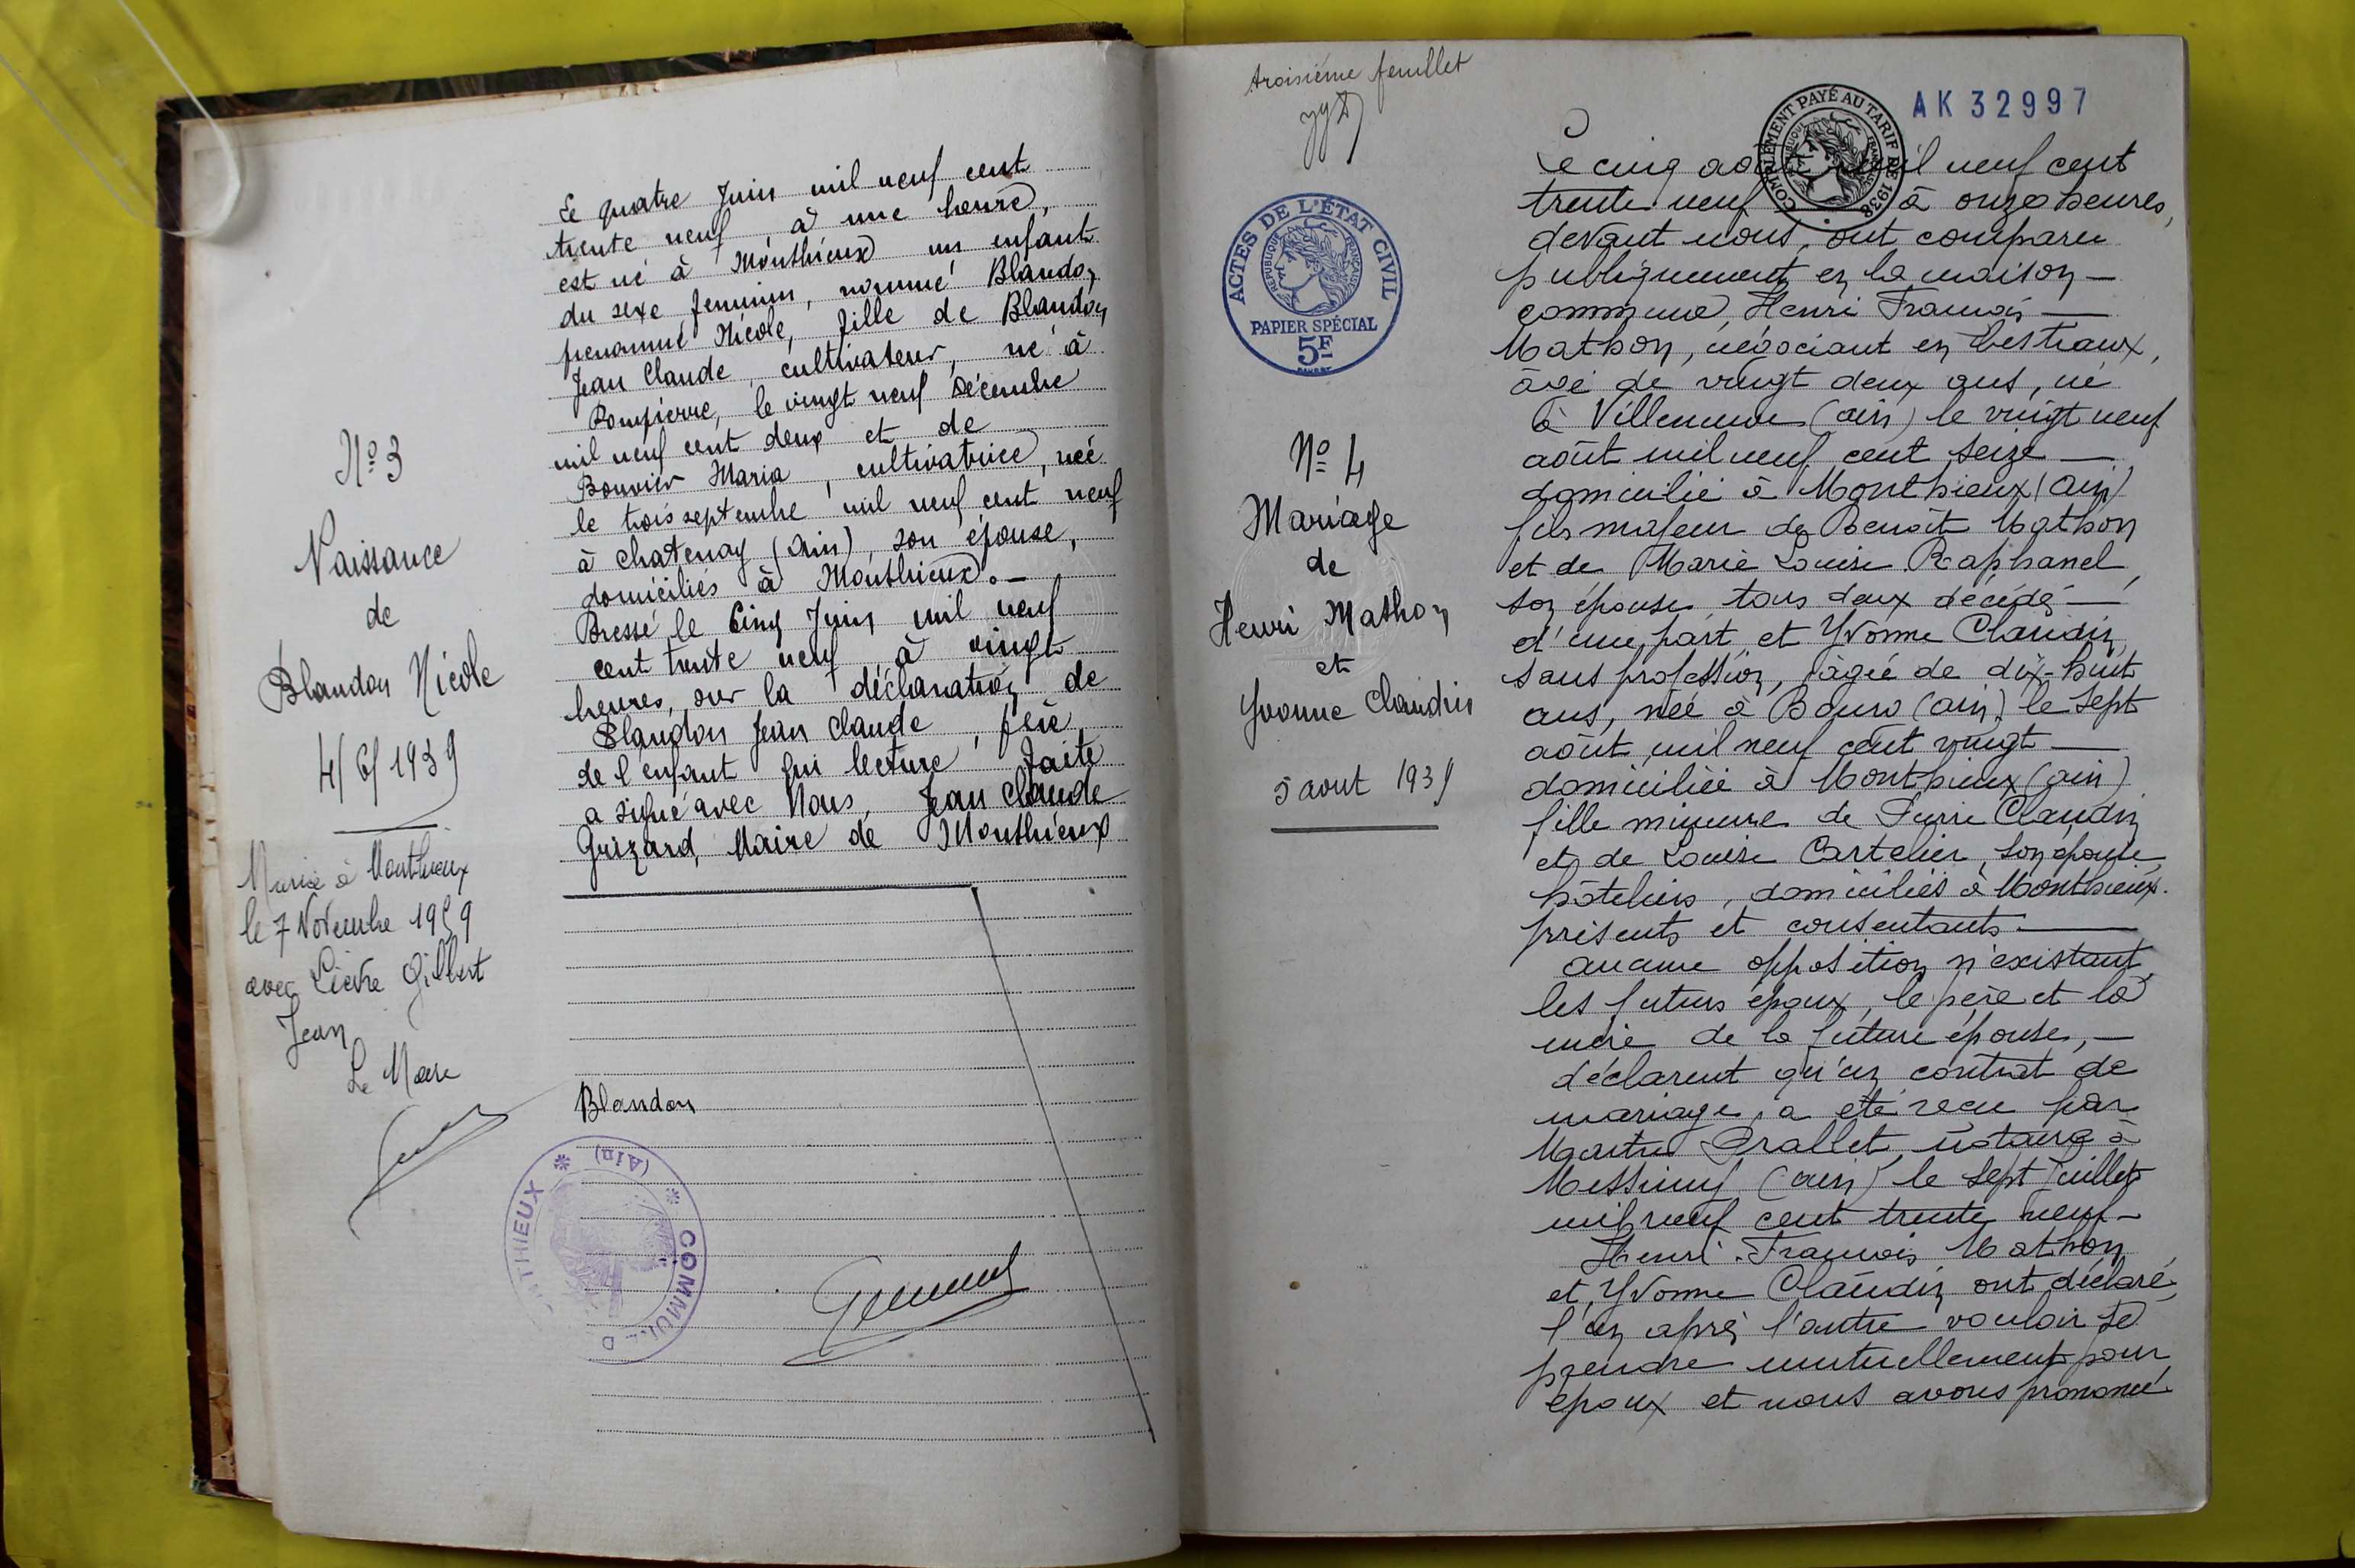 Nº 3
Naissance
de
Blandon Nicole
4/6/1939
Mariée à Monthieux
le 7 Novembre 1959
avec Lièvre Gilbert
Jean
Le Maire
Le quatre Juin mil neuf cent
trente neuf, à une heure,
est né à Monthieux un enfant
du sexe féminin, nommé Blandon
prénommé Nicole, fille de Blandon
Jean Claude, cultivateur, né à
Dompierre, le vingt neuf Décembre
mil neuf cent deux et de
Bouvier Maria, cultivatrice, née
le trois septembre mil neuf cent neuf
à Chatenay (Ain), son épouse,
domiciliés à Monthieux. —
Dressé le Cinq Juin mil neuf
cent trente neuf à vingt
heures, sur la déclaration de
Blandon Jean Claude, père
de l'enfant qui lecture faite
a signé avec Nous, Jean Claude
Grizard, Maire de Monthieux
Blandon
COMMUNE D
NTHIEUX
(Ain)
troisième feuillet
ACTES DE L'ÉTAT CIVIL
RÉPUBLIQUE FRANÇAISE
PAPIER SPÉCIAL
5F
Nº 4
Mariage
de
Henri Mathon
et
Yvonne Claudin
5 aout 1939
COMPLÉMENT PAYÉ AU TARIF DE 1938
AK 32997
Le cinq août mil neuf cent
trente neuf à onze heures,
devant nous, ont comparu
publiquement en la maison —
commune, Henri François —
Mathon, négociant en bestiaux,
âgé de vingt deux ans, né
à Villeneuve (ain) le vingt neuf
août mil neuf cent seize —
domicilié à Monthieux (ain)
fils majeur de Benoît Mathon
et de Marie Louise Raphanel,
son épouse, tous deux décédés —
d'une part, et Yvonne Claudin,
sans profession, âgée de dix-huit
ans, née à Bourg (ain), le sept
août mil neuf cent vingt —
domiciliée à Monthieux (ain)
fille mineure de Pierre Claudin
et de Louise Cartelier, son épouse,
hôteliers, domiciliés à Monthieux.
présents et consentants. —
aucune opposition n'existant,
les futurs époux, le père et la
mère de la future épouse, —
déclarent qu'un contrat de
mariage, a été reçu par
Maitre Prallet, notaire à
Messimy (ain) le sept Juillet
mil neuf cent trente neuf —
Henri François Mathon
et Yvonne Claudin ont déclaré
l'un après l'autre vouloir se
prendre mutuellement pour
époux et nous avons prononcé